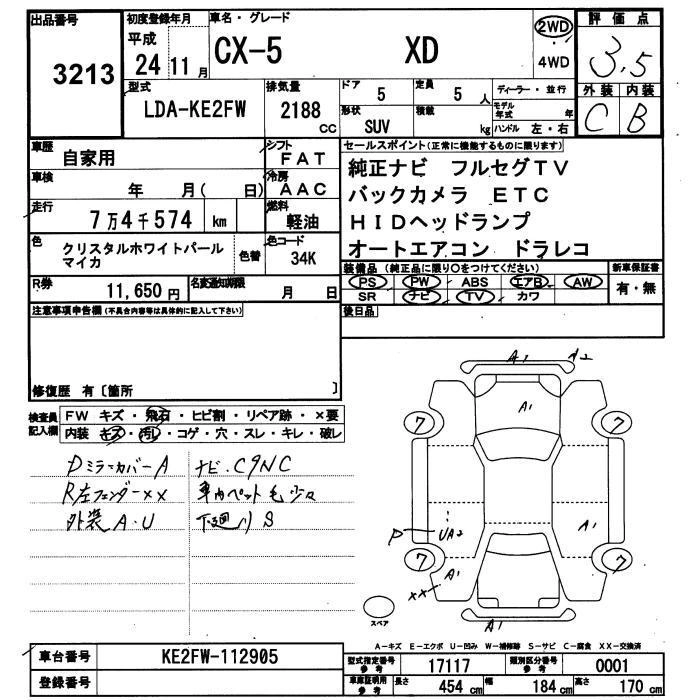 出品番号
3213
初度登録年月
平成
24 11 月
車名・グレード
CX-5 XD
2WD
4WD
評価点
3.5
外装 内装
C B
型式
LDA-KE2FW
排気量
2188 cc
ドア
5
定員
5 人
形状
SUV
積載
kg
ディーラー・並行
モデル年式 年
ハンドル 左・右
車歴
自家用
シフト
FAT
車検
年 月( 日)
冷房
AAC
走行
7万4千574 km
燃料
軽油
色
クリスタルホワイトパールマイカ
色替
色コード
34K
R券
11,650円
名変通知期限
月 日
セールスポイント(正常に機能するものに限ります)
純正ナビ フルセグTV
バックカメラ ETC
HIDヘッドランプ
オートエアコン ドラレコ
装備品(純正品に限り○をつけてください)
PS PW ABS エアB AW
SR ナビ TV カワ
新車保証書
有・無
後日品
注意事項申告欄(不具合内容等は具体的に記入して下さい)
修復歴 有〔箇所 〕
検査員記入欄
FW キズ・飛石・ヒビ割・リペア跡・×要
内装 キズ・汚レ・コゲ・穴・スレ・キレ・破レ
DミラーカバーA
R左フェンダーxx
外装A・U
ナビ・C9NC
車内ペット毛少々
下廻りS
A1 A2
A1
7 7
A1
P UA2
7 7
A1
xx
A1
スペア
A-キズ E-エクボ U-凹み W-補修跡 S-サビ C-腐食 XX-交換済
車台番号
KE2FW-112905
登録番号
型式指定番号参考
17117
類別区分番号参考
0001
車庫証明用参考
長さ 454 cm
幅 184 cm
高さ 170 cm